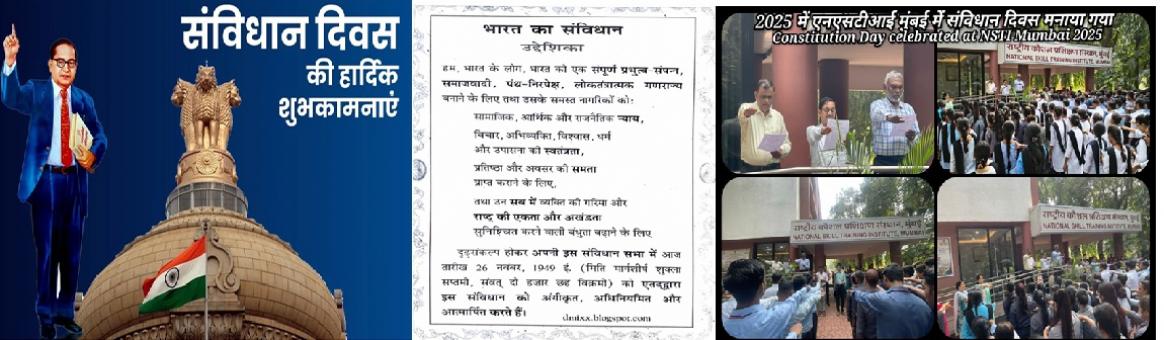 संविधान दिवस
की हार्दिक
शुभकामनाएं
भारत का संविधान
उद्देशिका
हम, भारत के लोग, भारत को एक संपूर्ण प्रभुत्व-संपन्न,
समाजवादी, पंथ-निरपेक्ष, लोकतंत्रात्मक गणराज्य
बनाने के लिए तथा उसके समस्त नागरिकों को:
सामाजिक, आर्थिक और राजनैतिक न्याय,
विचार, अभिव्यक्ति, विश्वास, धर्म
और उपासना की स्वतंत्रता,
प्रतिष्ठा और अवसर की समता
प्राप्त कराने के लिए,
तथा उन सब में व्यक्ति की गरिमा और
राष्ट्र की एकता और अखंडता
सुनिश्चित करने वाली बंधुता बढ़ाने के लिए
दृढ़संकल्प होकर अपनी इस संविधान सभा में आज
तारीख 26 नवंबर, 1949 ई. (मिति मार्गशीर्ष शुक्ला
सप्तमी, संवत् दो हजार छह विक्रमी) को एतद्द्वारा
इस संविधान को अंगीकृत, अधिनियमित और
आत्मार्पित करते हैं।
dmixx.blogspot.com
2025 में एनएसटीआई मुंबई में संविधान दिवस मनाया गया
Constitution Day celebrated at NSTI Mumbai 2025
राष्ट्रीय कौशल प्रशिक्षण संस्थान, मुंबई
NATIONAL SKILL TRAINING INSTITUTE, MUMBAI
राष्ट्रीय कौशल प्रशिक्षण संस्थान, मुंबई
NATIONAL SKILL TRAINING INSTITUTE, MUMBAI
राष्ट्रीय कौशल प्रशिक्षण संस्थान, मुंबई
NATIONAL SKILL TRAINING INSTITUTE, MUMBAI